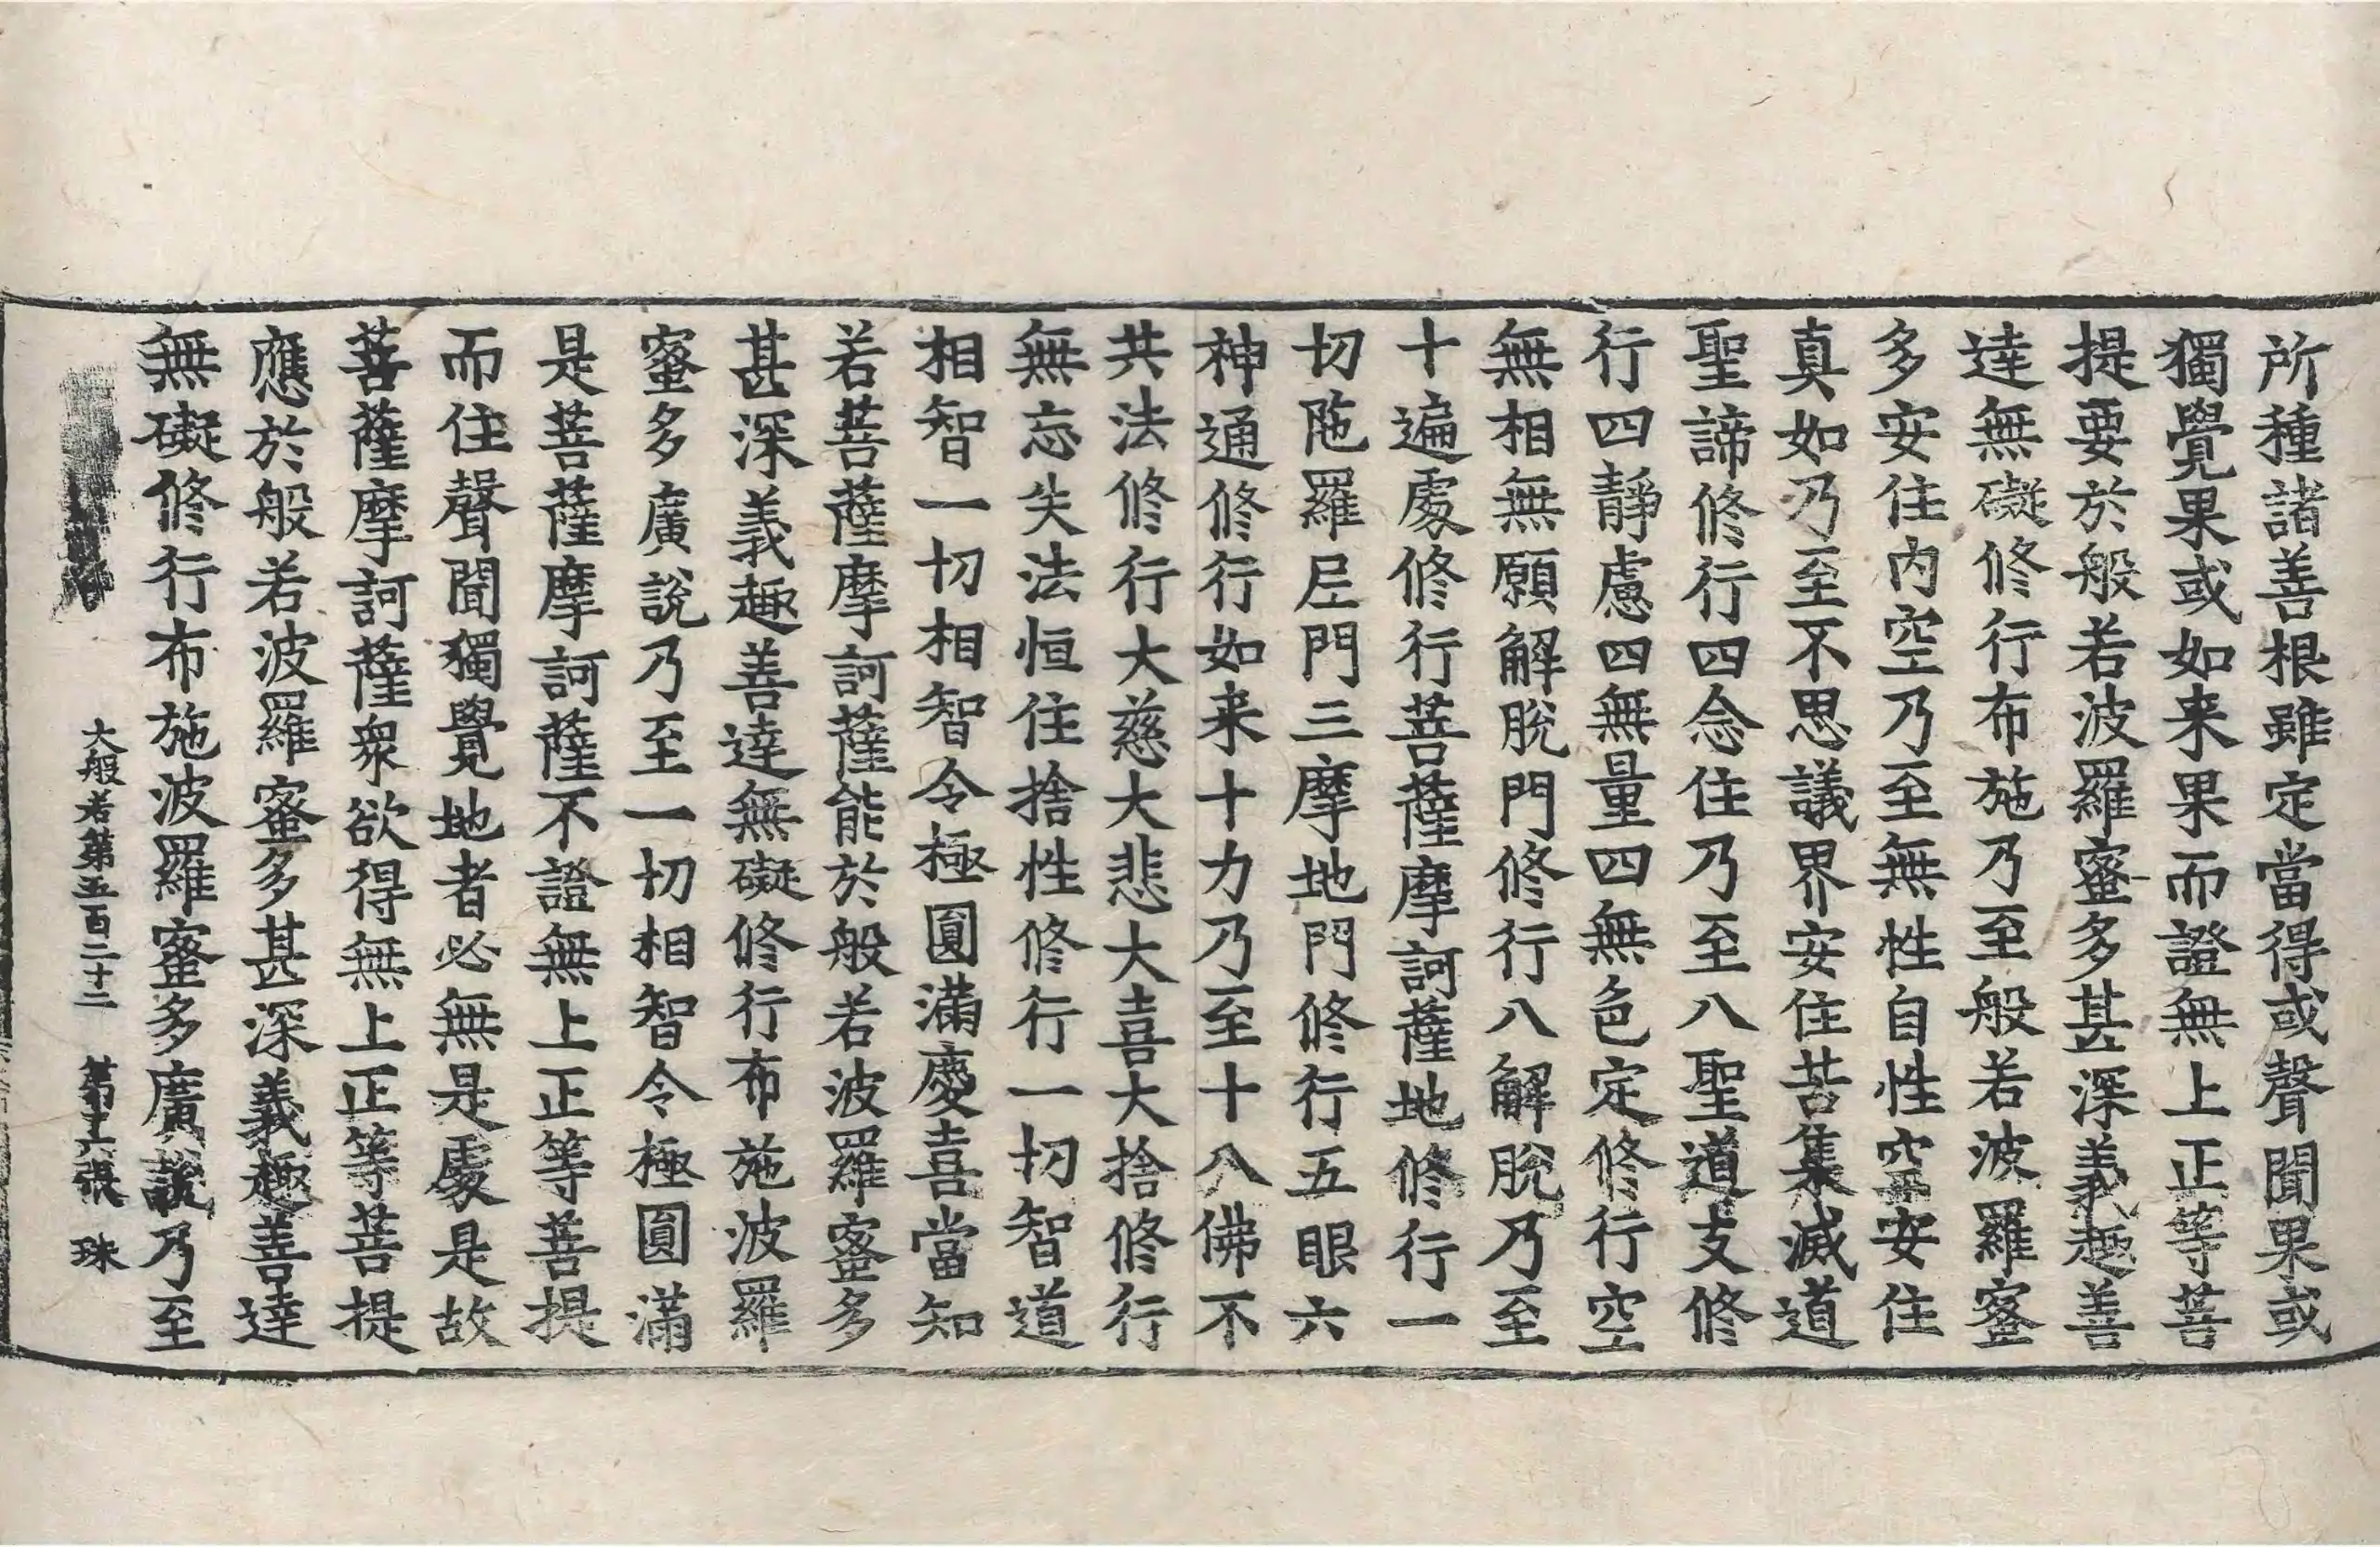 所種諸善根雖定當得或聲聞果或
獨覺果或如来果而證無上正等菩
提要於般若波羅蜜多甚深義趣善
達無礙修行布施乃至般若波羅蜜
多安住内空乃至無性自性空安住
真如乃至不思議界安住苦集滅道
聖諦修行四念住乃至八聖道支修
行四靜慮四無量四無色定修行空
無相無願解脫門修行八解脫乃至
十遍處修行菩薩摩訶薩地修行一
切陁羅尼門三摩地門修行五眼六
神通修行如来十力乃至十八佛不
共法修行大慈大悲大喜大捨修行
無忘失法恒住捨性修行一切智道
相智一切相智令極圓滿慶喜當知
若菩薩摩訶薩能於般若波羅蜜多
甚深義趣善達無礙修行布施波羅
蜜多廣說乃至一切相智令極圓滿
是菩薩摩訶薩不證無上正等菩提
而住聲聞獨覺地者必無是處是故
菩薩摩訶薩衆欲得無上正等菩提
應於般若波羅蜜多甚深義趣善達
無礙修行布施波羅蜜多廣說乃至
大般若第五百二十二 第十六張 珠